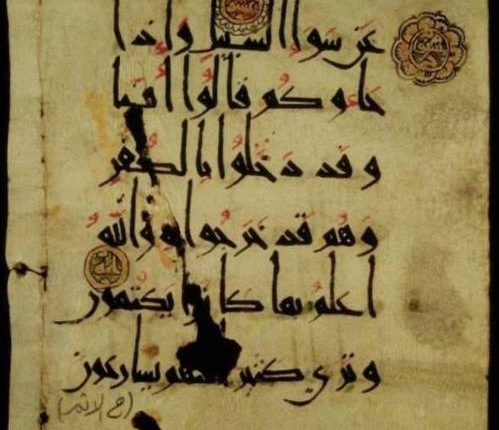 عن سوا السبيل واذا
جاءوكم قالوا أمنا
وقد دخلوا بالكفر
وهم قد خرجوا به والله
اعلم بما كانوا يكتمون
وترى كثيرا منهم يسارعون
الاثم)